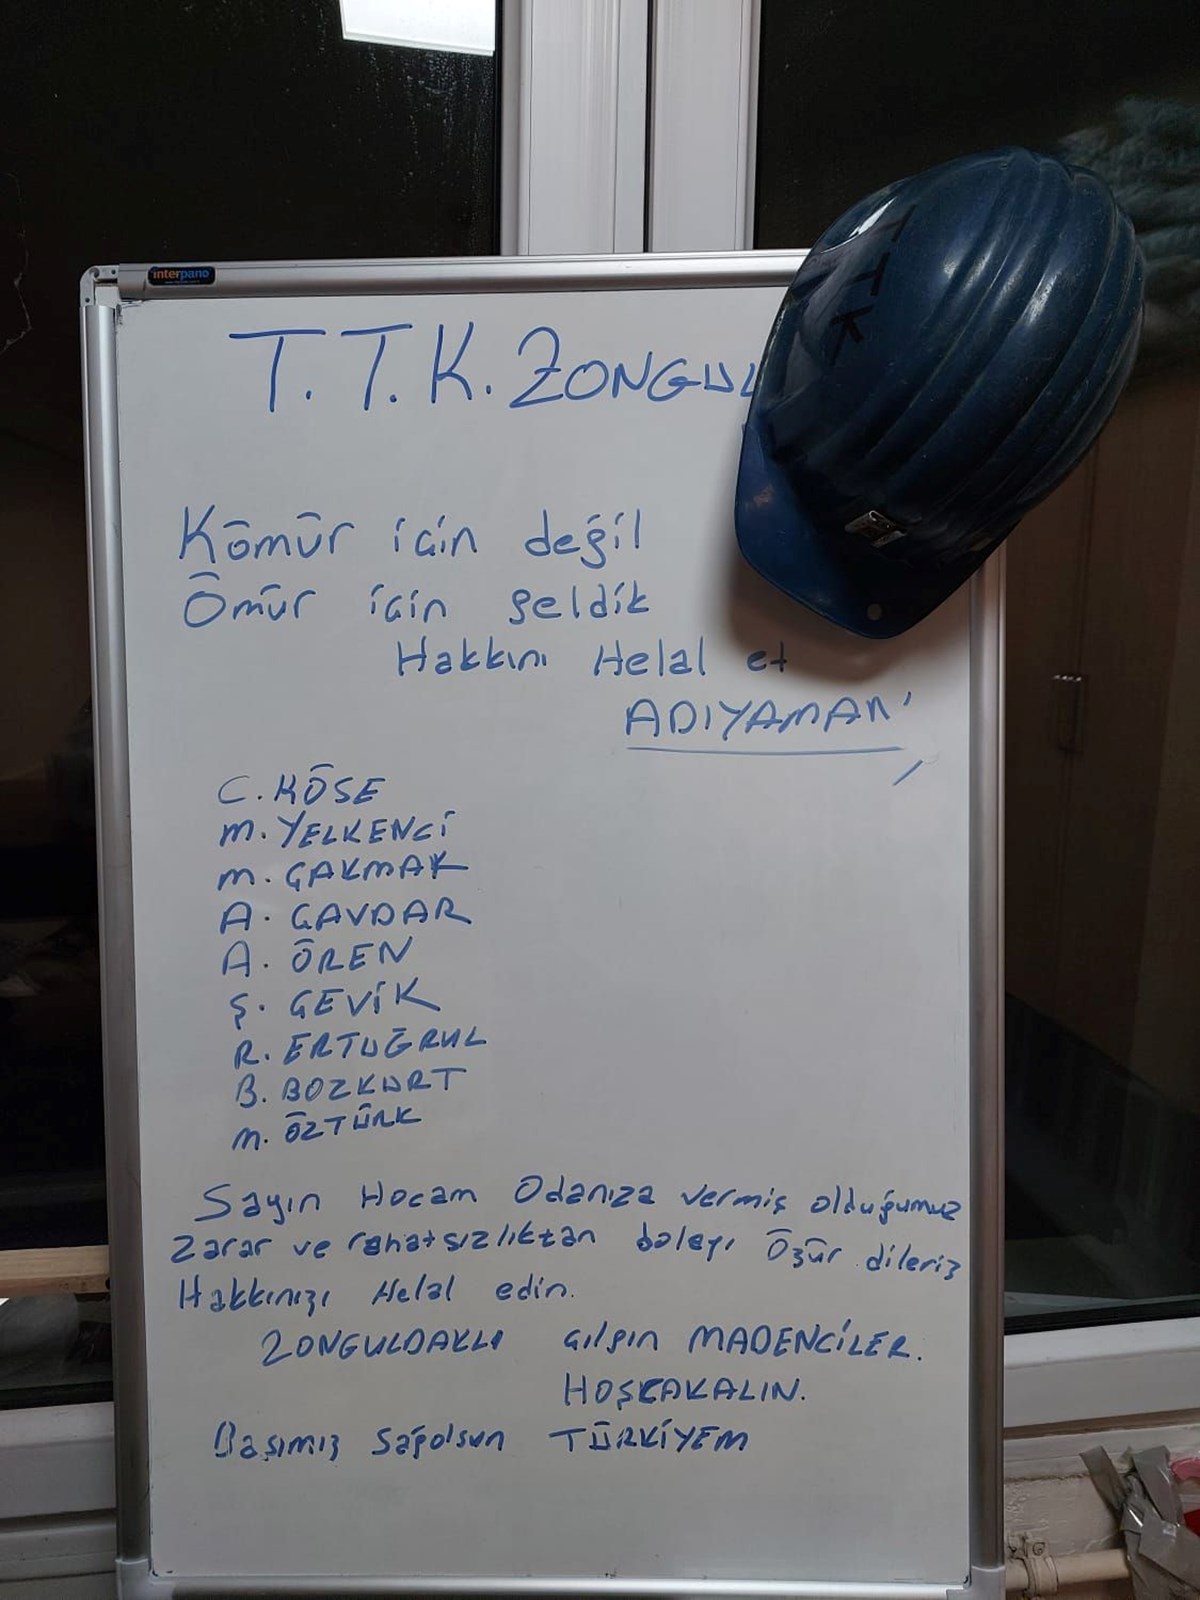 interpano
T.T.K. ZONGUL
TTK
Kömür için değil
Ömür için geldik
Hakkını Helal et
ADIYAMAN'
C. KÖSE
M. YELKENCİ
M. ÇAKMAK
A. ÇAVDAR
A. ÖREN
Ş. ÇEVİK
R. ERTUĞRUL
B. BOZKURT
M. ÖZTÜRK
Sayın Hocam Odanıza vermiş olduğumuz
zarar ve rahatsızlıktan dolayı Özür dileriz
Hakkınızı Helal edin.
ZONGULDAKLI Çılgın MADENCİLER.
HOŞÇAKALIN.
Başımız Sağolsun TÜRKİYEM